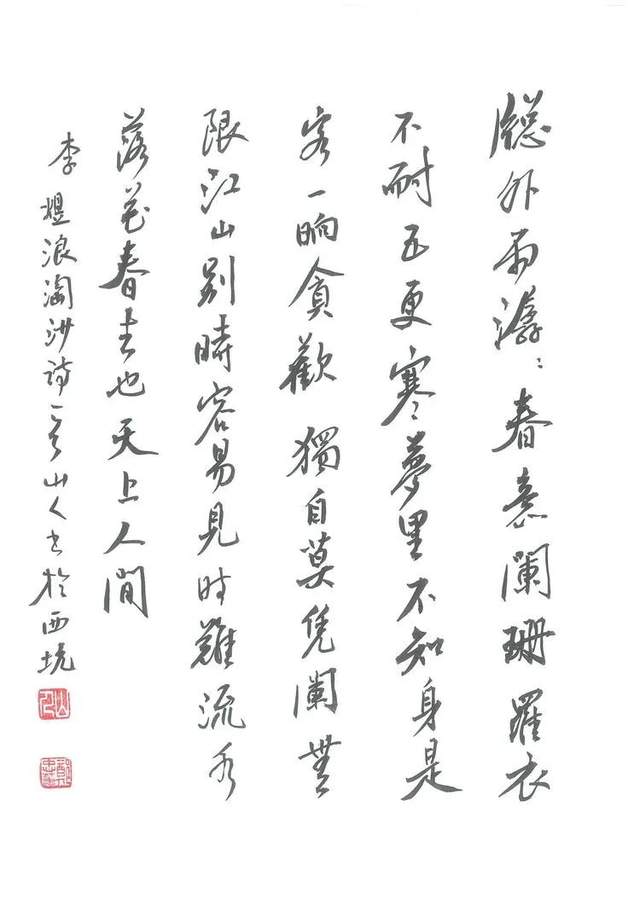 牕外雨潺〻春意闌珊羅衣
不耐五更寒夢里不知身是
客一晌貪歡獨自莫凭闌無
限江山別時容易見时難流水
落花春去也天上人間
李煜浪淘沙詩山人书於西坑